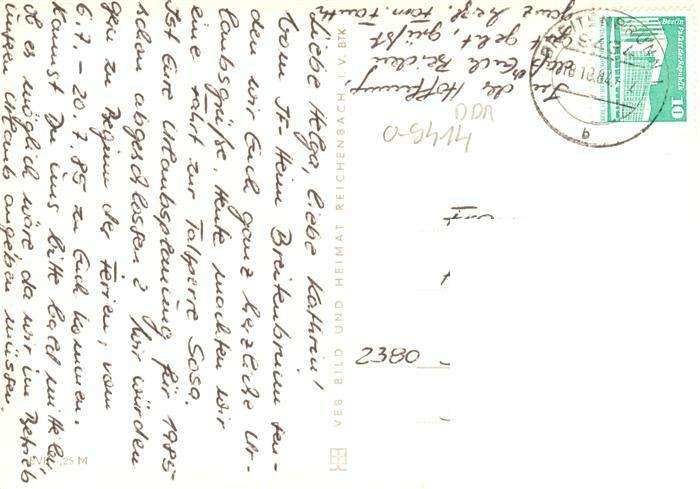 Liebe Helga, liebe Kathrin!
Vom FT-Heim Breitenbrunn sen-
den wir Euch ganz herzliche Ur-
laubsgrüße. Heute machten wir
eine Fahrt zur Talsperre Sosa.
Ist Eure Urlaubsplanung für 1985
schon abgeschlossen? Wir würden
gern zu Beginn der Ferien, vom
6.7. - 20.7.85 zu Euch kommen.
Kannst Du uns bitte bald mitteilen
ob es möglich wäre, da wir im Betrieb
unseren Urlaub angeben müssen.
In der Hoffnung,
daß es Euch Beiden
gut geht, grüßt
ganz herzl. Fam.
VEB BILD UND HEIMAT REICHENBACH I. V. BTK
,25 M
2380
BREITENBRUNN
10.84
Berlin
Palast der Republik
10
DDR